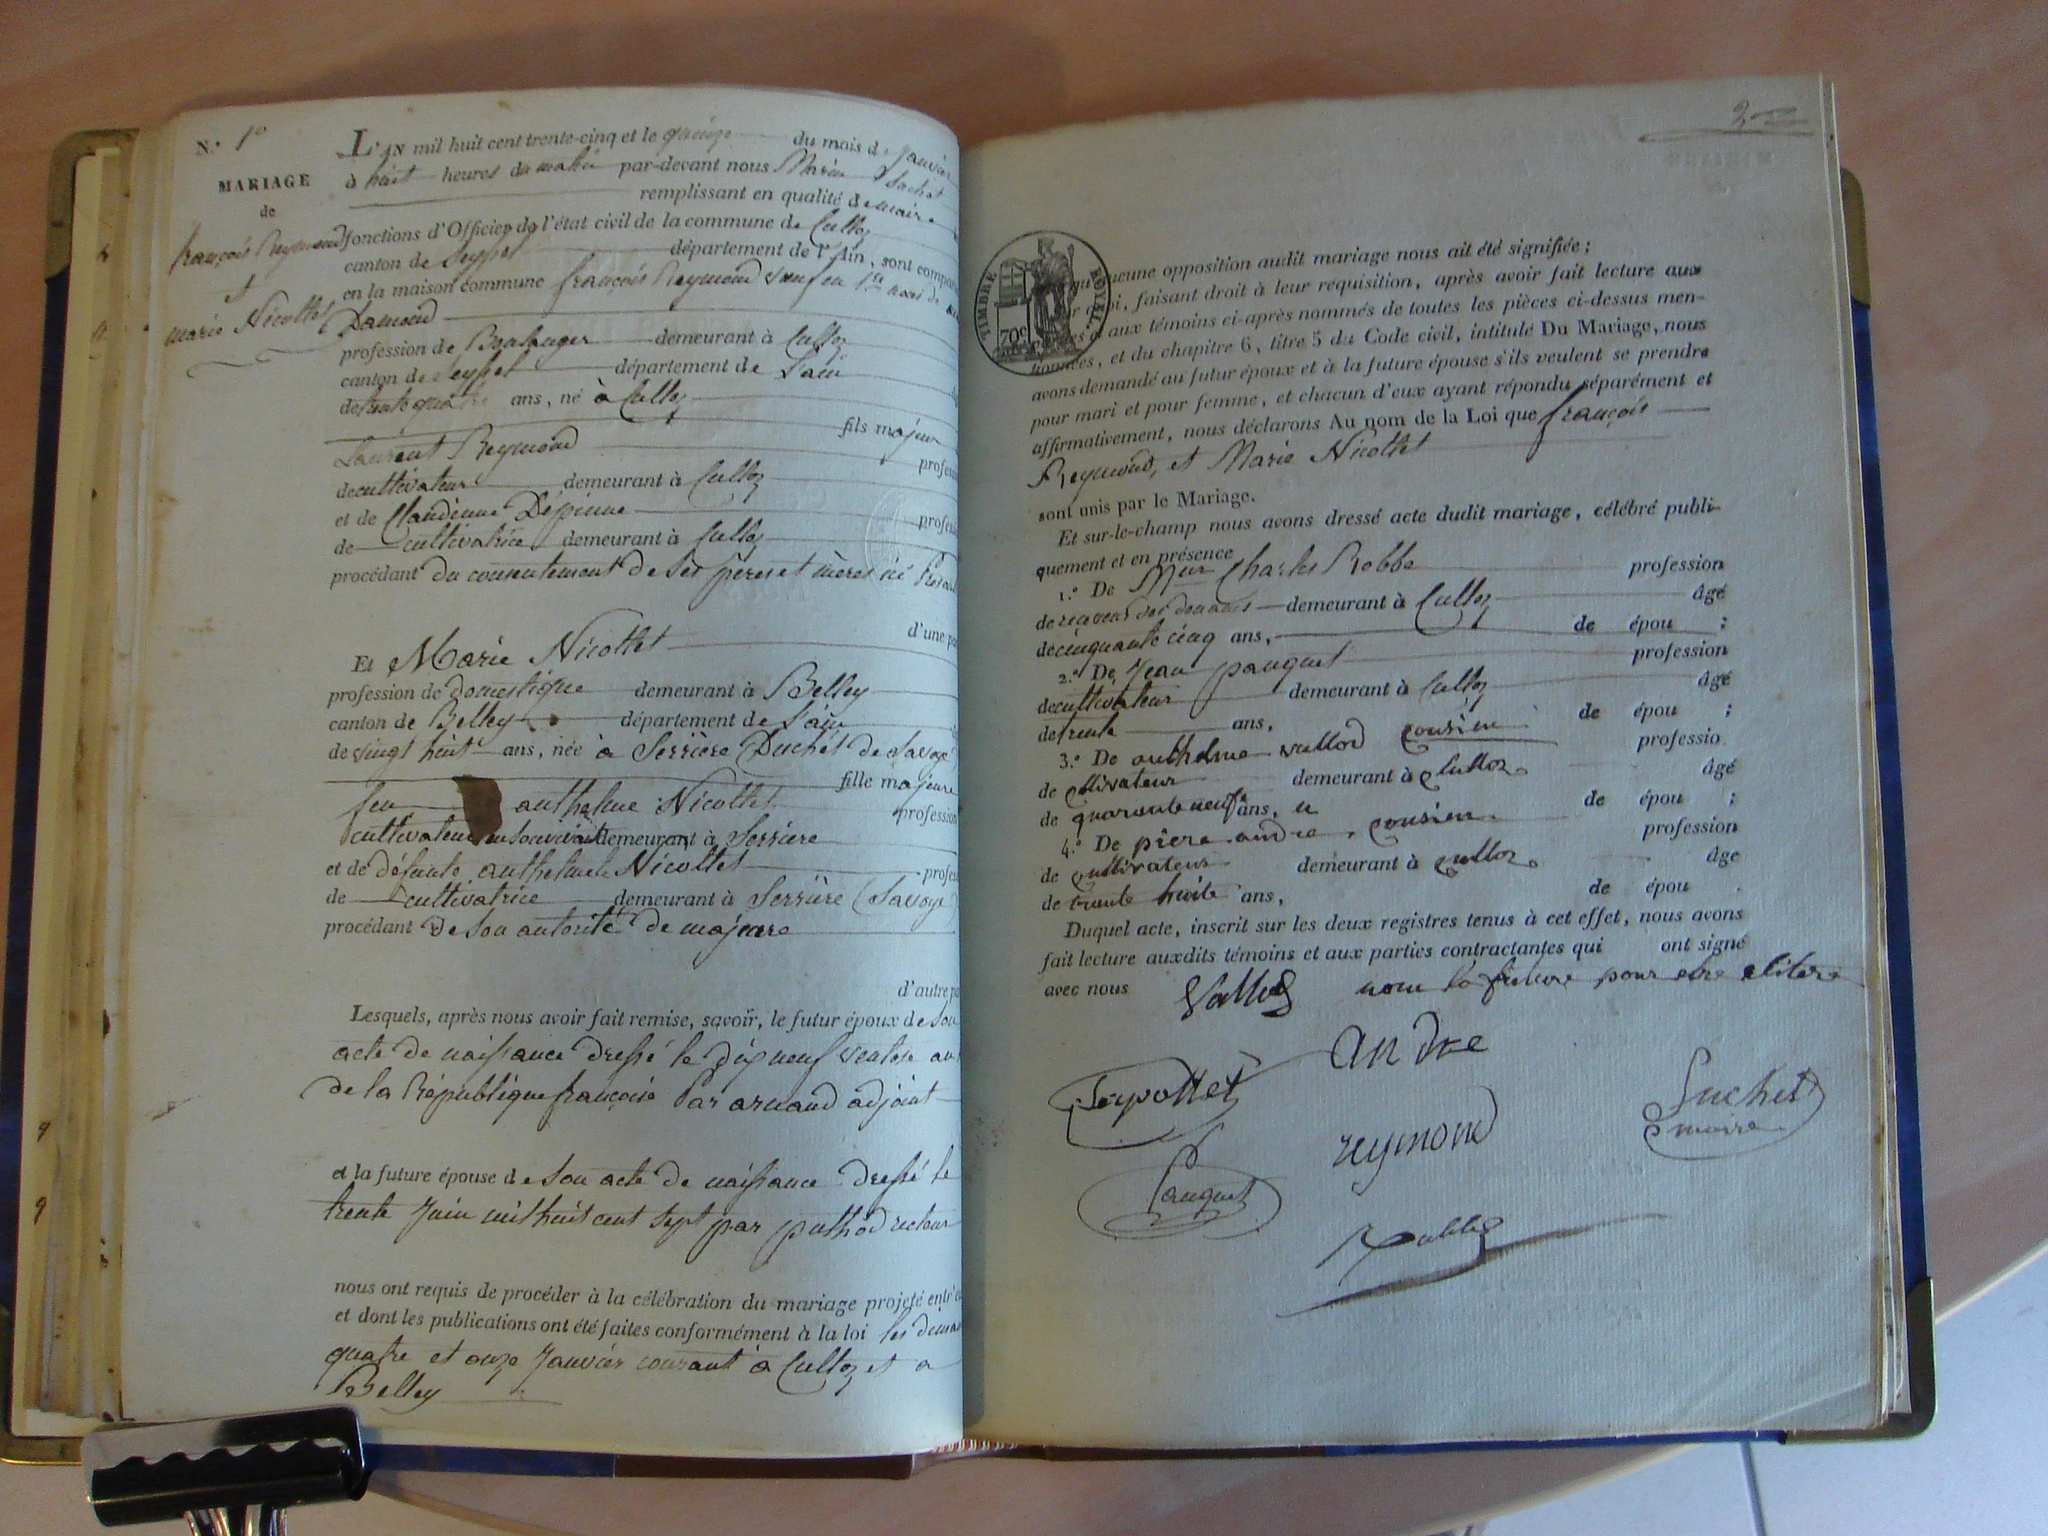 N.° 1°
MARIAGE
de
françois Reymond
et
marie Nicollet
L'AN mil huit cent trente-cinq et le quinze du mois de janvier
à huit heures du matin par-devant nous Suchet
remplissant en qualité de maire
fonctions d'Officier de l'état civil de la commune de Culloz
canton de Seyssel département de l'Ain, sont compar
en la maison commune françois Reymond veuf en 1res noces de
Damond
profession de Boulanger demeurant à Culloz
canton de Seyssel département de L'ain
de trente quatre ans, né à Culloz
fils majeur
Laurent Reymond profess
de cultivateur demeurant à Culloz
et de Claudine Dépinne profess
de cultivatrice demeurant à Culloz
procédant du consentement de ses pères et mères ici
d'une pa
Et Marie Nicollet
profession de domestique demeurant à Belley
canton de Belley département de L'ain
de vingt huit ans, née à Serrière Duché de Savoye
fille majeure
feu anthelme Nicollet profession
cultivateur en son vivant demeurant à Serrière
et de défunte anthelme Nicollet profes
de cultivatrice demeurant à Serrière (Savoye)
procédant de son autorité de majeure
d'autre pa
Lesquels, après nous avoir fait remise, savoir, le futur époux de son
acte de naissance dressé le dix neuf ventose an
de la République françoise Par arnaud adjoint
et la future épouse de son acte de naissance dressé le
trente Juin mil huit cent sept par puthod recteur
nous ont requis de procéder à la célébration du mariage projeté entr'e
et dont les publications ont été faites conformément à la loi les diman
quatre et onze Janvier courant à Culloz et a
Belley
2
TIMBRE ROYAL
70c
qu'aucune opposition audit mariage nous ait été signifiée ;
r quoi, faisant droit à leur réquisition, après avoir fait lecture aux
es et aux témoins ci-après nommés de toutes les pièces ci-dessus men-
tionnées, et du chapitre 6, titre 5 du Code civil, intitulé Du Mariage, nous
avons demandé au futur époux et à la future épouse s'ils veulent se prendre
pour mari et pour femme, et chacun d'eux ayant répondu séparément et
affirmativement, nous déclarons Au nom de la Loi que françois
Reymond, et Marie Nicollet
sont unis par le Mariage.
Et sur-le-champ nous avons dressé acte dudit mariage, célébré publi-
quement et en présence
1.° De Mur Charles Robbe profession
de receveur des douanes demeurant à Culloz âgé
de cinquante cinq ans, de épou ;
2.° De Jean pauquet profession
de cultivateur demeurant à Culloz âgé
de trente ans, de épou ;
3.° De anthelme vallod cousin professio
de cultivateur demeurant à culloz âgé
de quarante neuf ans, de épou ;
4.° De piere andre cousin profession
de cultivateur demeurant à culloz âge
de trente huite ans, de épou
Duquel acte, inscrit sur les deux registres tenus à cet effet, nous avons
fait lecture auxdits témoins et aux parties contractantes qui ont signé
avec nous non la future pour etre elitere
Vallod
andre
Serpollet
Suchet
maire
reymond
Pauquet
Robbe